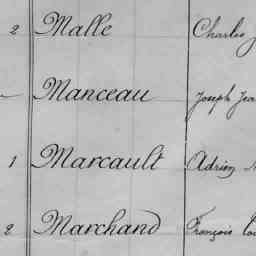 2 Malle Charles
Manceau Joseph Jea
1 Marcault Adrien
2 Marchand François